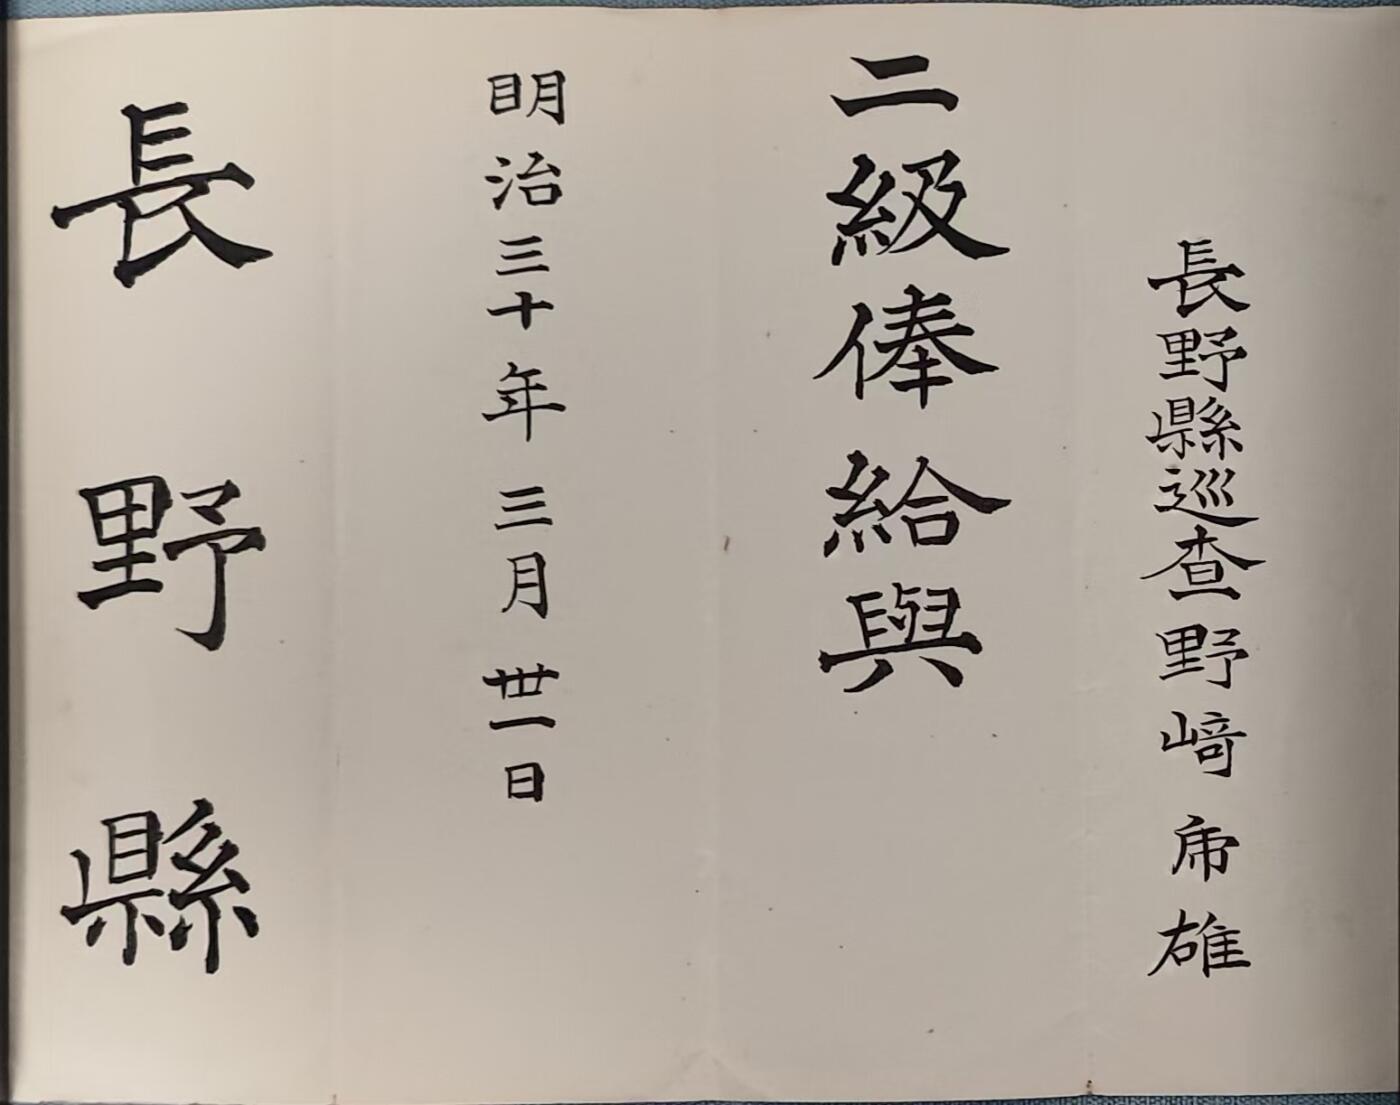 長野縣巡査野﨑乕雄
二級俸給與
明治三十年三月丗一日
長野縣